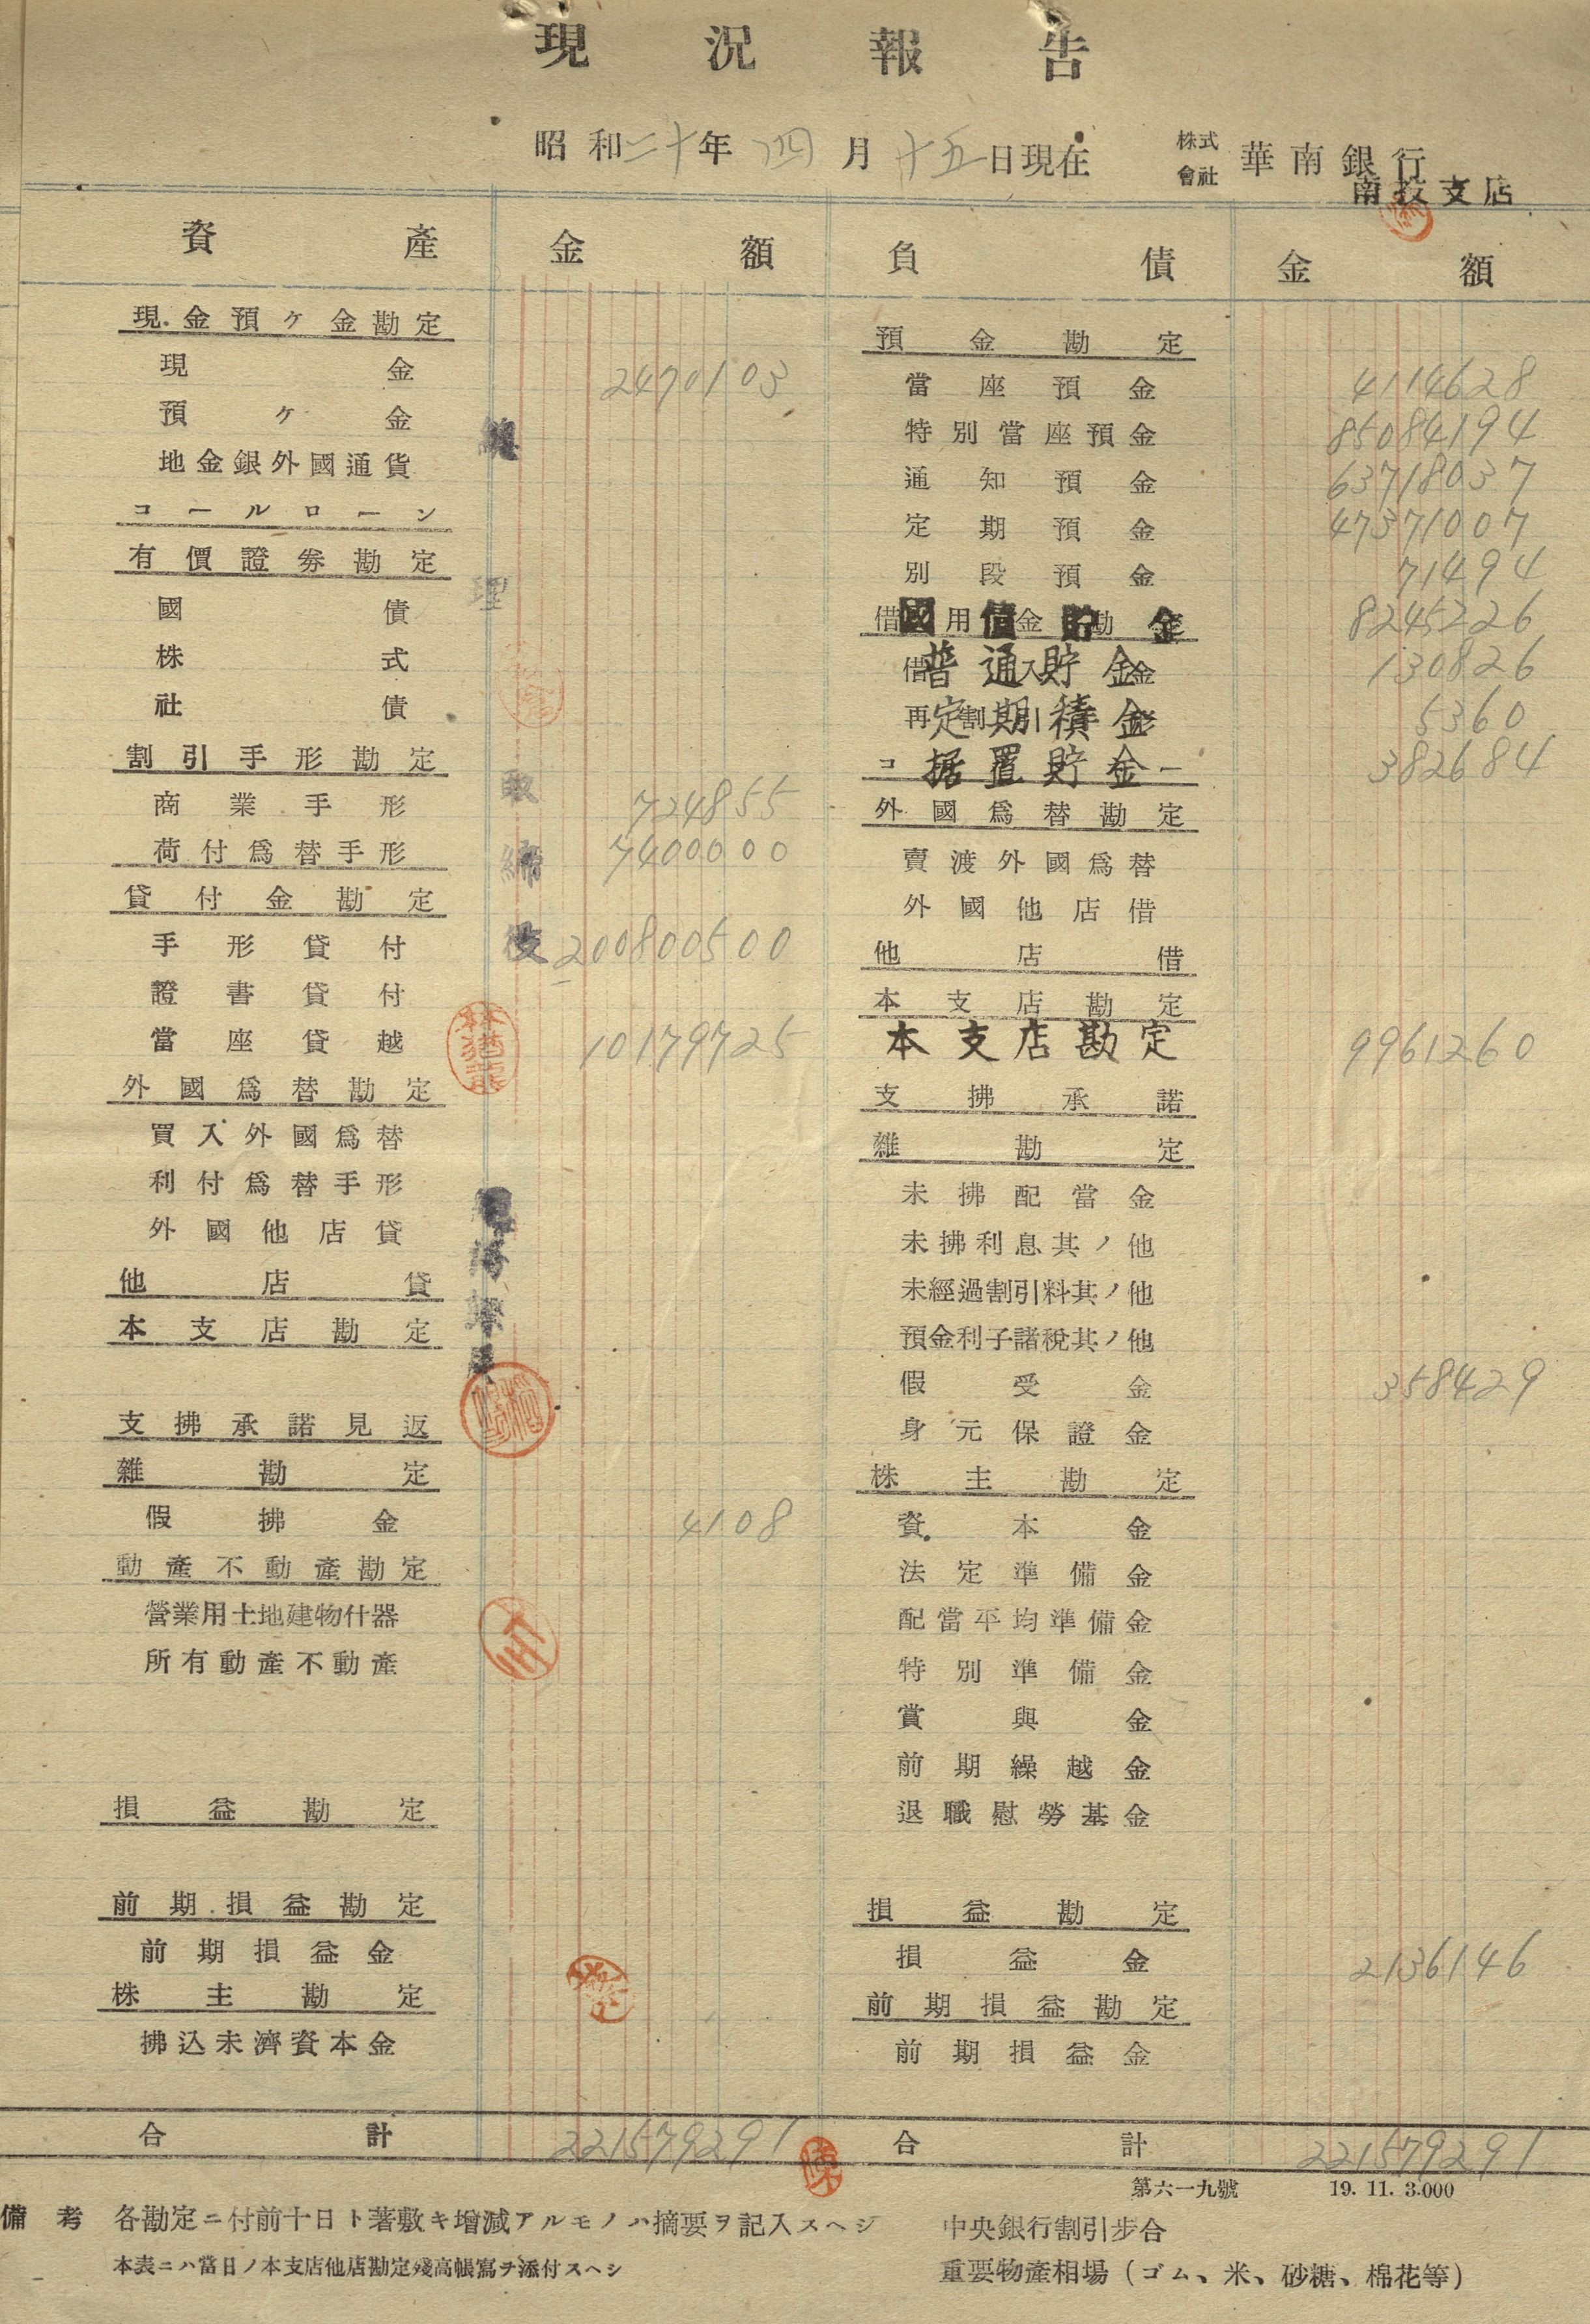 現況報告
昭和二十年 四月十五日現在
株式會社 華南銀行
南投支店
資產 金額
現金預ケ金勘定
現金 2470103
預ケ金
地金銀外國通貨
コールローン
有價證券勘定
國債
株式
社債
割引手形勘定
商業手形 724855
荷付爲替手形 7400000
貸付金勘定
手形貸付 200800500
證書貸付
當座貸越 10179725
外國爲替勘定
買入外國爲替
利付爲替手形
外國他店貸
他店貸
本支店勘定
支拂承諾見返
雜勘定
假拂金 4108
動產不動產勘定
營業用土地建物什器
所有動產不動產
損益勘定
前期損益勘定
前期損益金
株主勘定
拂込未濟資本金
合計 221579291
負債 金額
預金勘定
當座預金 4114628
特別當座預金 85084194
通知預金 63718037
定期預金 47371007
別段預金 71494
國債貯金 8245226
普通貯金 130826
定期積金 5360
据置貯金 382684
外國爲替勘定
賣渡外國爲替
外國他店借
他店借
本支店勘定
本支店勘定 9961260
支拂承諾
雜勘定
未拂配當金
未拂利息其ノ他
未經過割引料其ノ他
預金利子諸稅其ノ他
假受金 358429
身元保證金
株主勘定
資本金
法定準備金
配當平均準備金
特別準備金
賞與金
前期繰越金
退職慰勞基金
損益勘定
損益金 2136146
前期損益勘定
前期損益金
合計 221579291
第六一九號 19. 11. 3.000
備考 各勘定ニ付前十日ト著敷キ增減アルモノハ摘要ヲ記入スヘシ
本表ニハ當日ノ本支店他店勘定殘高帳寫ヲ添付スヘシ
中央銀行割引步合
重要物產相場(ゴム、米、砂糖、棉花等)